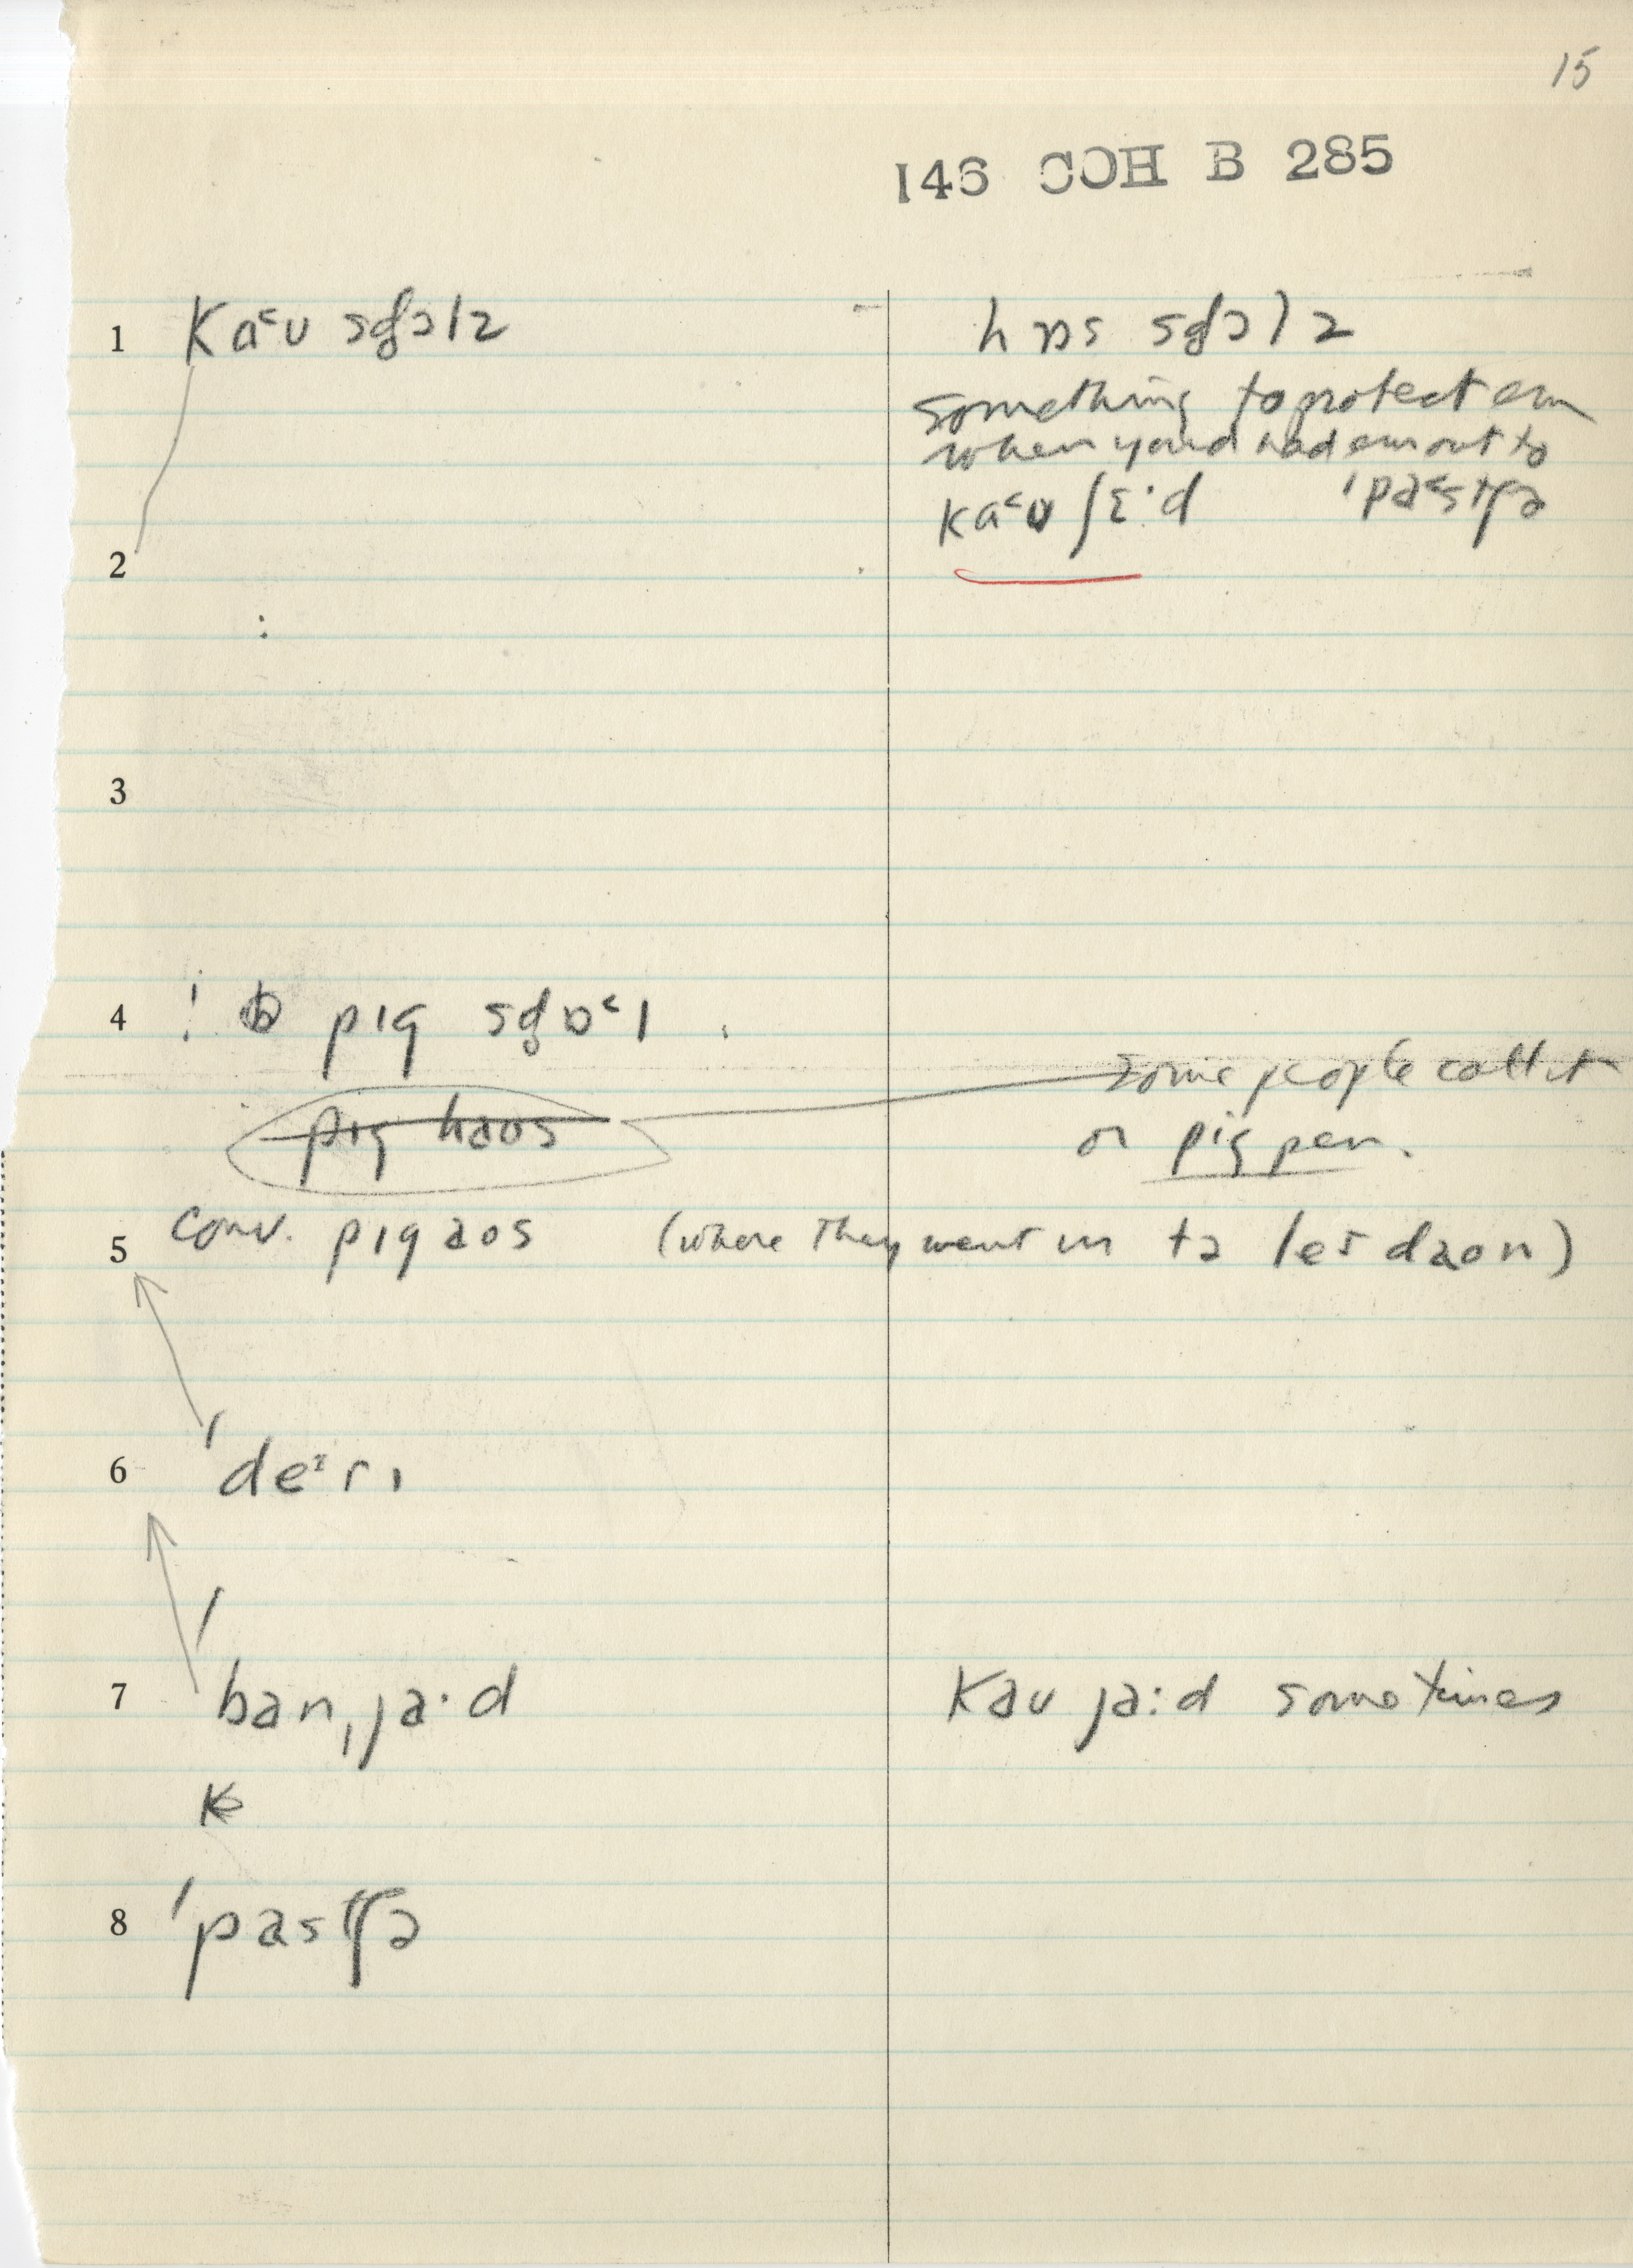 15
146 COH B 285
1 Ka˂ʊ sd̥ɔlz hɒs sd̥ɔlz
something to protect em
when you'd had em out to
2 ka˂ʊ ʃɛ·d ˈpa˂stʃə
3
4 ! pɪg sd̥ɒ˂l
pɪg haʊs some people call it
or pig pen.
5 conv. pɪg aʊs (where they went in tə leɪ daʊn)
6 ˈdeᶦrɪ
7 ˈbanˌja·d Kaʊ ja:d sometimes
8 ˈpastʃə